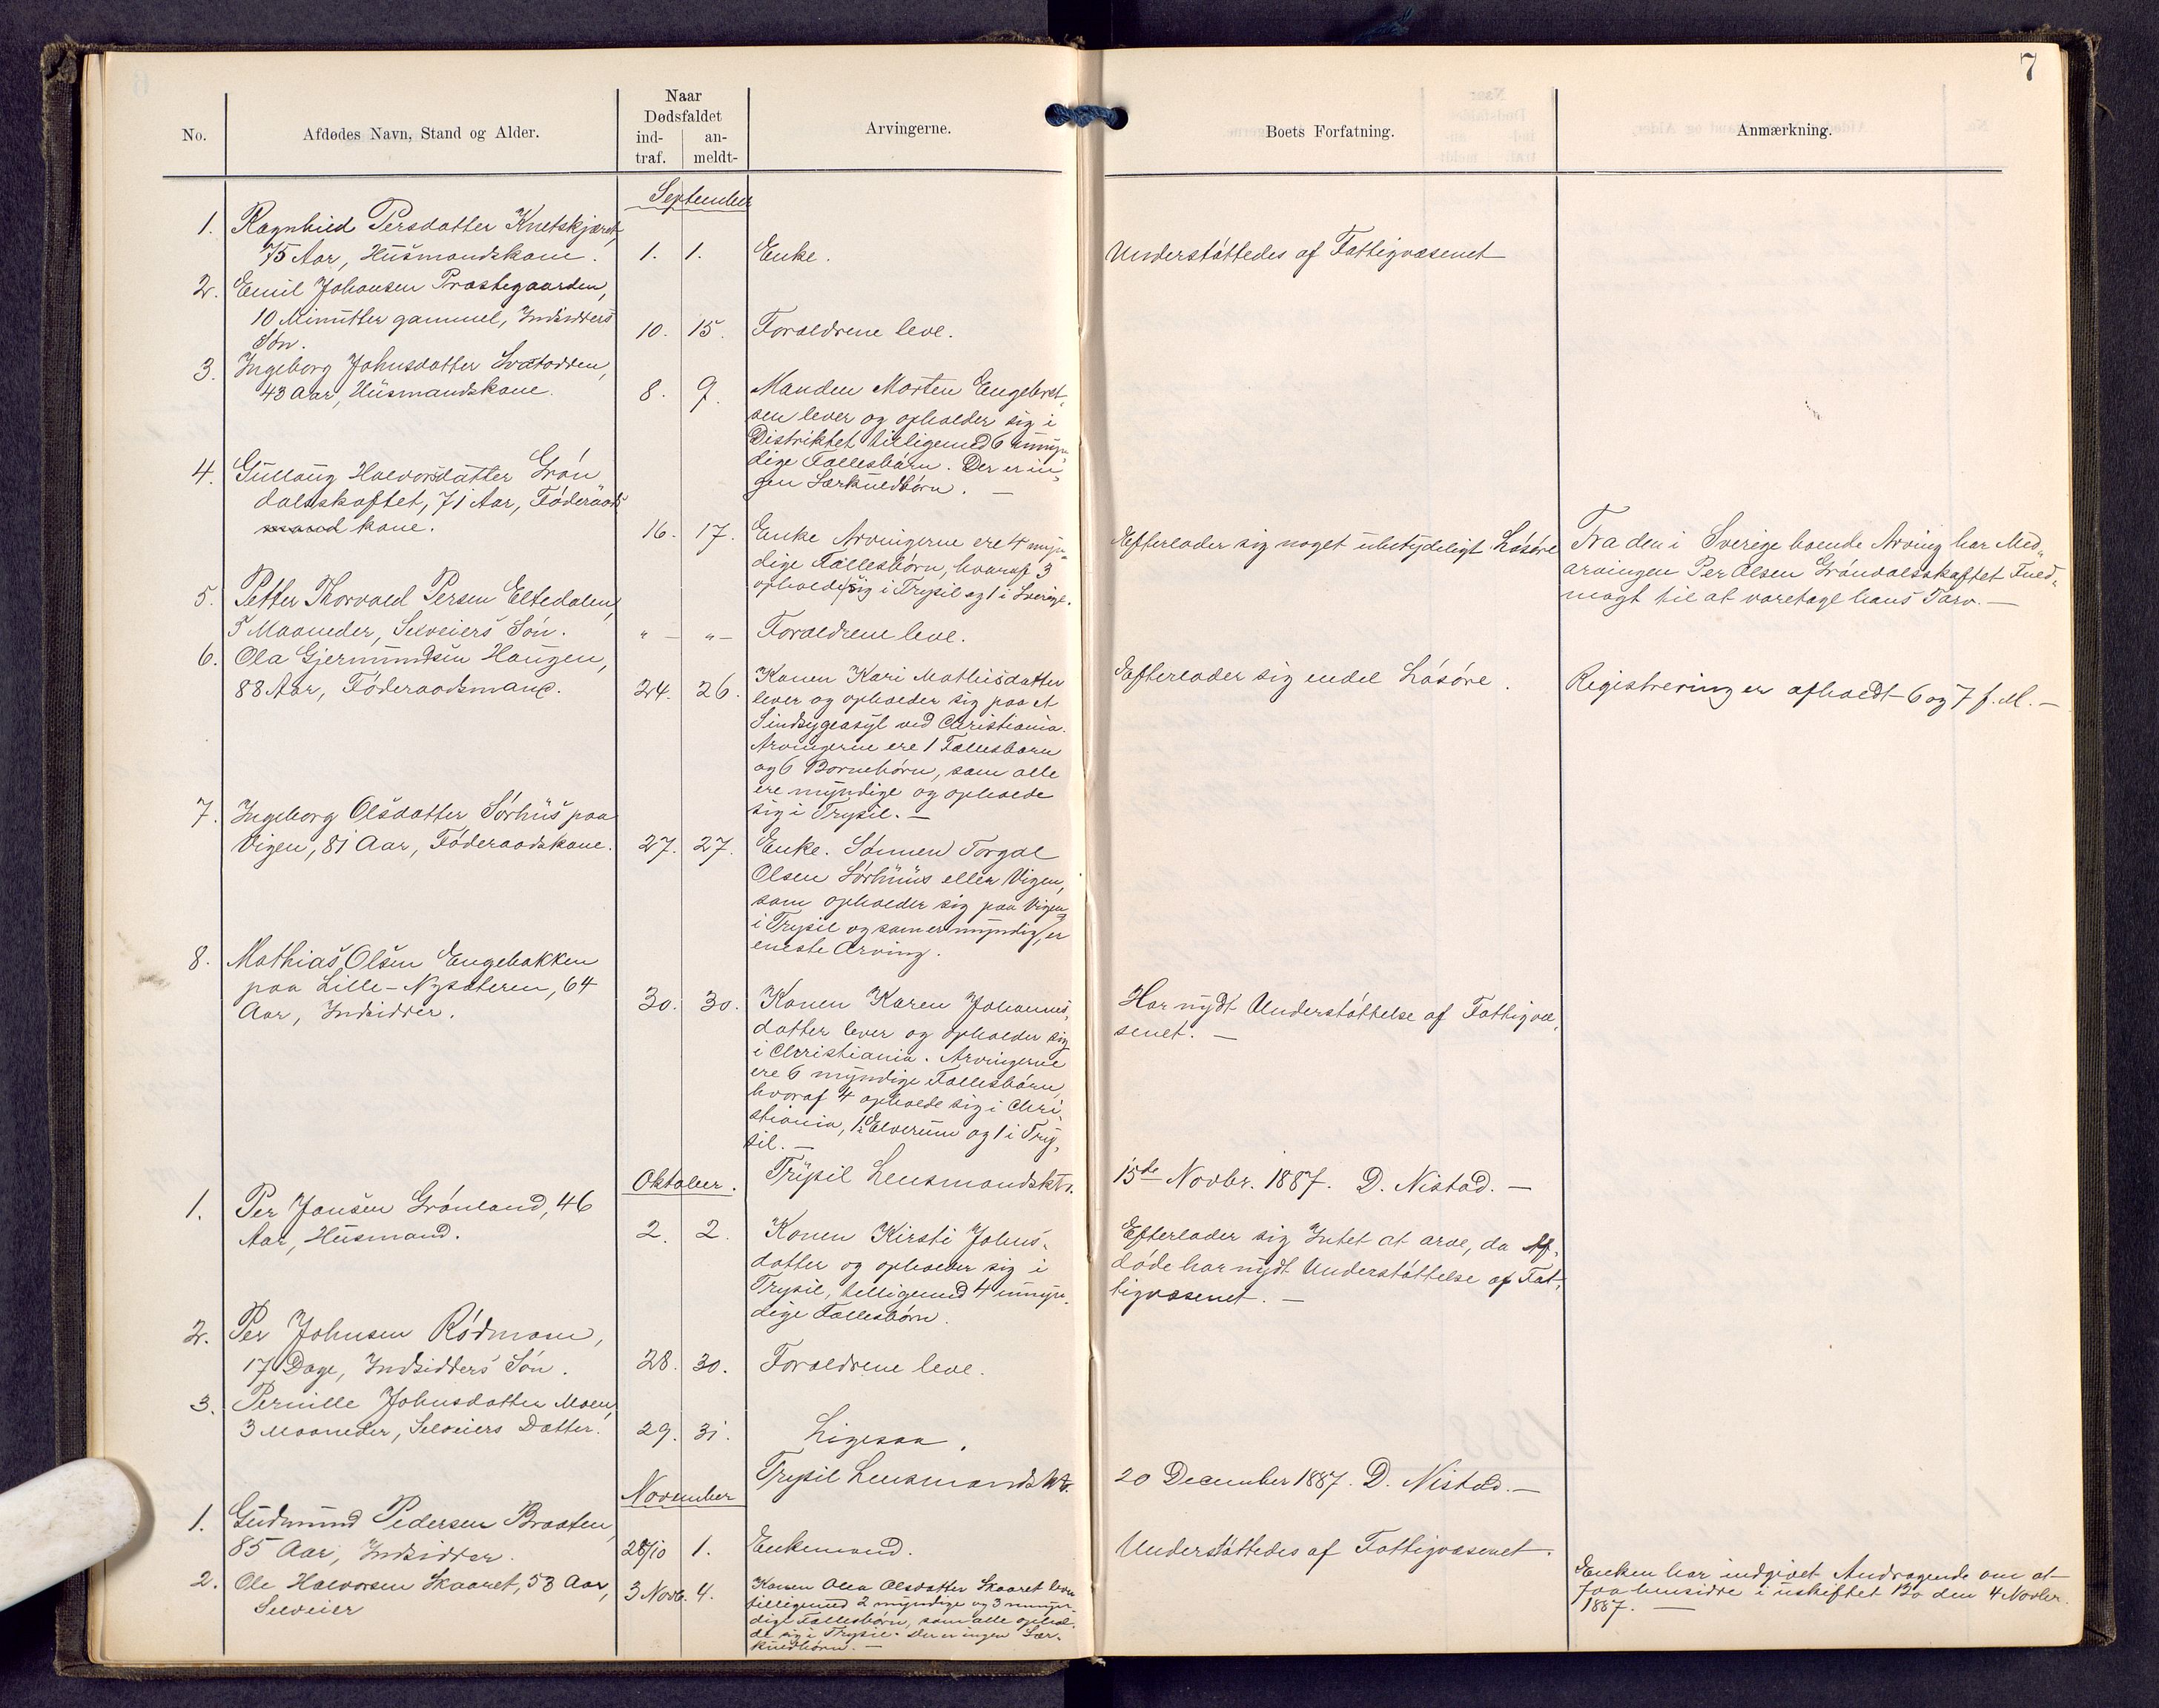 7
No.
Afdødes Navn, Stand og Alder.
Naar
Dødsfaldet
ind-
traf.
an-
meldt-
Arvingerne.
Boets Forfatning.
Anmærkning.
September
1. Ragnhild Persdatter Knetskjæret,
75 Aar, Husmandskone. 1. 1. Enke. Understøttedes af Fattigvæsenet
2. Emil Johansen Præstegaarden,
10 Minutter gammel, Indsidders
Søn. 10. 15. Forældrene leve.
3. Ingeborg Johnsdatter Svatodden,
43 Aar, Husmandskone. 8. 9. Manden Morten Engebret-
sen lever og opholder sig i
Distriktet tilligemed 6 umyn-
dige Fællesbørn. Der er in-
gen Særkuldbørn. —
4. Gullaug Halvorsdatter Grøn
dalsskaftet, 71 Aar, Føderaads
mand kone. 16. 17. Enke Arvingerne ere 4 myn-
dige Fællesbørn, hvoraf 3
opholde sig i Trysil og 1 i Sverige.
Efterlader sig noget ubetydeligt Løsøre
Fra den i Sverige boende Arving har Med-
arvingen Per Olsen Grøndalsskaftet Fuld-
magt til at varetage hans Tarv. —
5. Petter Thorvald Persen Eltedalen,
5 Maaneder, Selveiers Søn. " — " — Forældrene leve.
6. Ola Gjermundsen Haugen,
88 Aar, Føderaadsmand. 24. 26. Konen Kari Mathisdatter
lever og opholder sig paa et
Sindsygeasyl ved Christiania.
Arvingerne ere 1 Fællesbarn
og 6 Børnebørn, som alle
ere myndige og opholde
sig i Trysil. —
Efterlader sig endel Løsøre.
Registrering er afholdt 6 og 7 f. M. —
7. Ingeborg Olsdatter Sørhus paa
Vigen, 81 Aar, Føderaadskone. 27. 27. Enke. Sønnen Torgal
Olsen Sørhuus eller Vigen,
som opholder sig paa Vigen
i Trysil og som er myndig, er
eneste Arving.
8. Mathias Olsen Engebakken
paa Lille-Nysæteren, 64
Aar, Indsidder. 30. 30. Konen Karen Johannes-
datter lever og opholder sig
i Christiania. Arvingerne
ere 6 myndige Fællesbørn,
hvoraf 4 opholde sig i Chri-
stiania, 1 i Elverum og 1 i Try-
sil. —
Har nydt Understøttelse af Fattigvæ-
senet. —
Trysil Lensmandskt. 15de Novbr. 1887. D. Nistad. —
Oktober.
1. Per Jansen Grønland, 46
Aar, Husmand. 2. 2. Konen Kirsti Johns-
datter og opholder sig i
Trysil, tilligemed 4 umyn-
dige Fællesbørn.
Efterlader sig Intet at arve, da Af-
døde har nydt Understøttelse af Fat-
tigvæsenet. —
2. Per Johnsen Rødmoen,
17 Dage, Indsidders Søn. 28. 30. Forældrene leve.
3. Pernille Johnsdatter Moen,
3 Maaneder, Selveiers Datter. 29. 31. Ligesaa.
Trysil Lensmandskt. 20 December 1887. D. Nistad. —
November
1. Gudmund Pedersen Braaten,
85 Aar, Indsidder. 28/10 1. Enkemand. Understøttedes af Fattigvæsenet.
2. Ole Halvorsen Skaaret, 53 Aar,
Selveier 3 Novb. 4. Konen Olea Olsdatter Skaaret lever
tilligemed 2 myndige og 3 umyn-
dige Fællesbørn, som alle ophol-
de sig i Trysil. Der er ingen Sær-
kuldbørn. —
Enken har indgivet Andragende om at
faa hensidde i uskiftet Bo den 4 Novbr.
1887. —